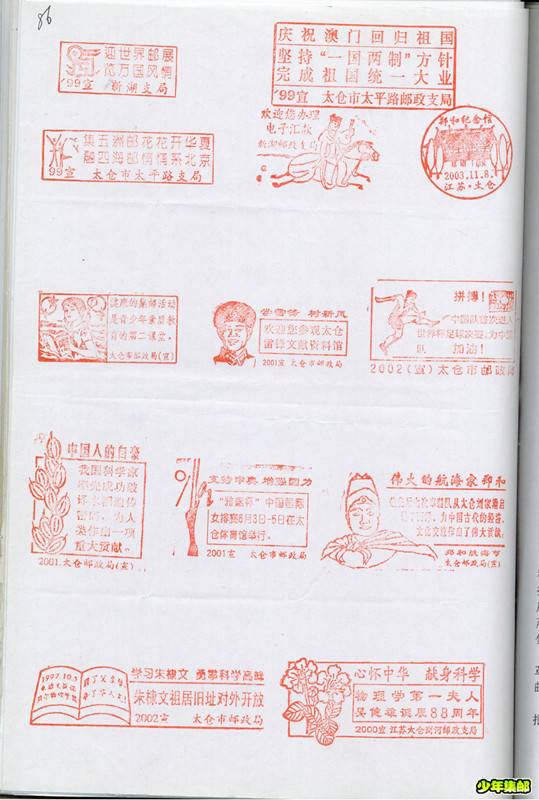 86
迎世界邮展
览万国风情
'99宣 新湖支局
庆祝澳门回归祖国
坚持“一国两制”方针
完成祖国统一大业
'99宣 太仓市太平路邮政支局
集五洲邮花花开华夏
融四海邮情情系北京
99宣 太仓市太平路支局
欢迎您办理
电子汇款
新湖邮政支局
郑和纪念馆
2003.11.8.
江苏·太仓
健康的集邮活动
是青少年素质教
育的第二课堂。
太仓市邮政局(宣)
学雷锋 树新风
欢迎您参观太仓
雷锋文献资料馆
2001宣 太仓市邮政局
拼搏！
中国队首次进入
世界杯足球决赛,为中国
队 加油！
2002(宣)太仓市邮政局
中国人的自豪
我国科学家
率先成功破
译水稻遗传
密码，为人
类作出一项
重大贡献。
2001.太仓邮政局(宣)
支持申奥 增强国力
“雅鹿杯”中国国际
女排赛6月3日-5日在太
仓体育馆举行。
2001宣 太仓市邮政局
伟大的航海家郑和
为中国古代的经济、
文化交流作出了伟大贡献。
郑和航海节
太仓邮政局(宣)
1997.10.5
学习朱棣文 勇攀科学高峰
朱棣文祖居旧址对外开放
2002宣 太仓市邮政局
心怀中华 献身科学
物理学第一夫人
吴健雄诞辰88周年
2000宣 江苏太仓浏河邮政支局
少年集邮